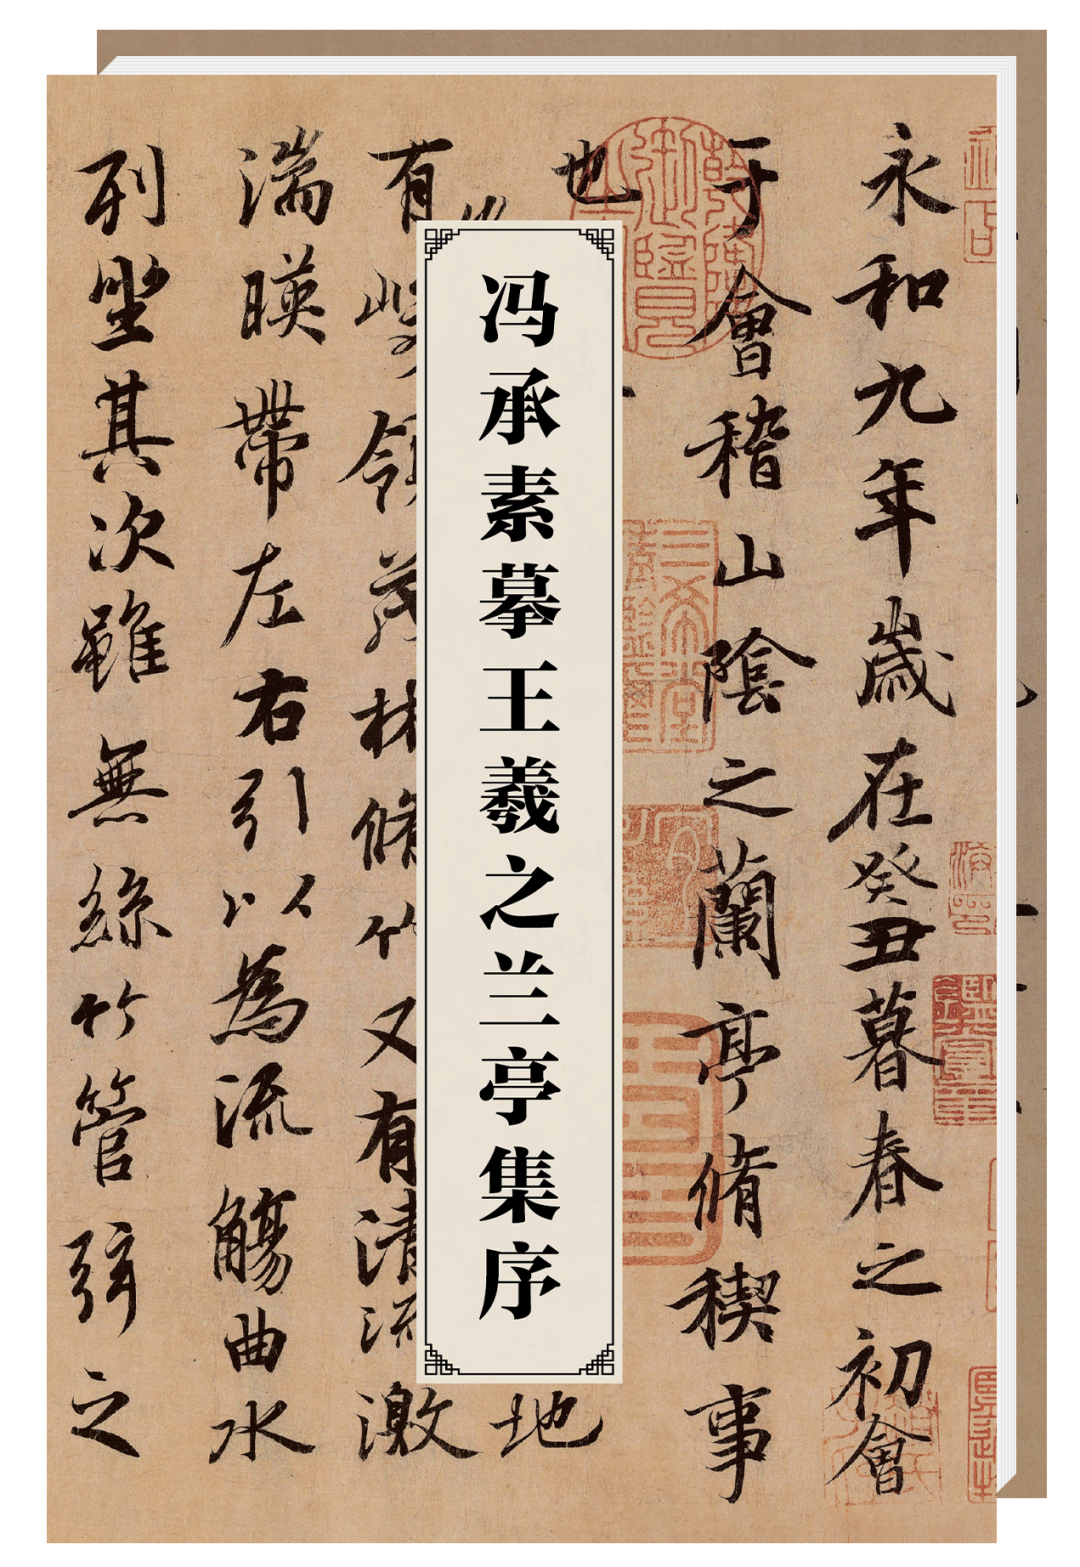 永和九年歲在癸丑暮春之初會
于會稽山陰之蘭亭脩稧事
也
地
冯承素摹王羲之兰亭集序
有峻領茂林脩竹又有清流激
湍暎帶左右引以為流觴曲水
列坐其次雖無絲竹管弦之